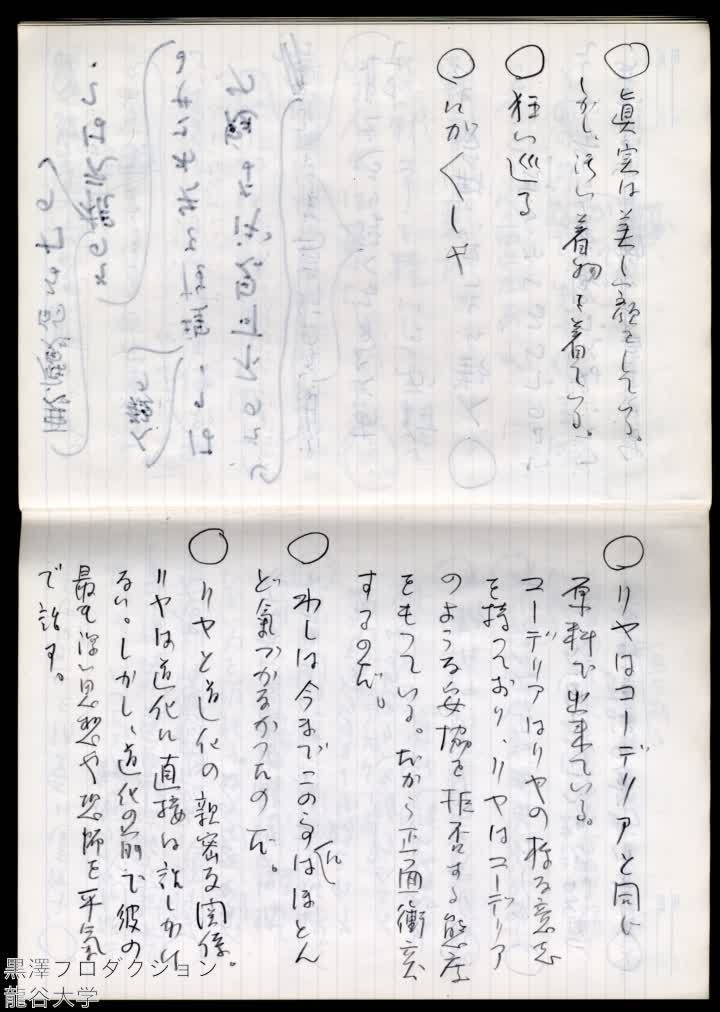 ○ 眞実は美しい顔をしている。
しかし、汚い着物を着ている。
○ 狂い巡る
○ いがくしゃ
○ リヤはコーデリアと同じ
原料で出来ている。
コーデリアはリヤの持つ意志
を持っており、リヤはコーデリア
のような妥協を拒否する態度
をもっている。だから正面衝突
するのだ。
○ わしは今までこの事にはほとん
ど氣づかなかったのだ。
○ リヤと道化の親密な関係。
リヤは道化に直接は話しかけ
ない。しかし、道化の前で彼の
最も深い思想や恐怖を平氣
で話す。
黒澤プロダクション
龍谷大学